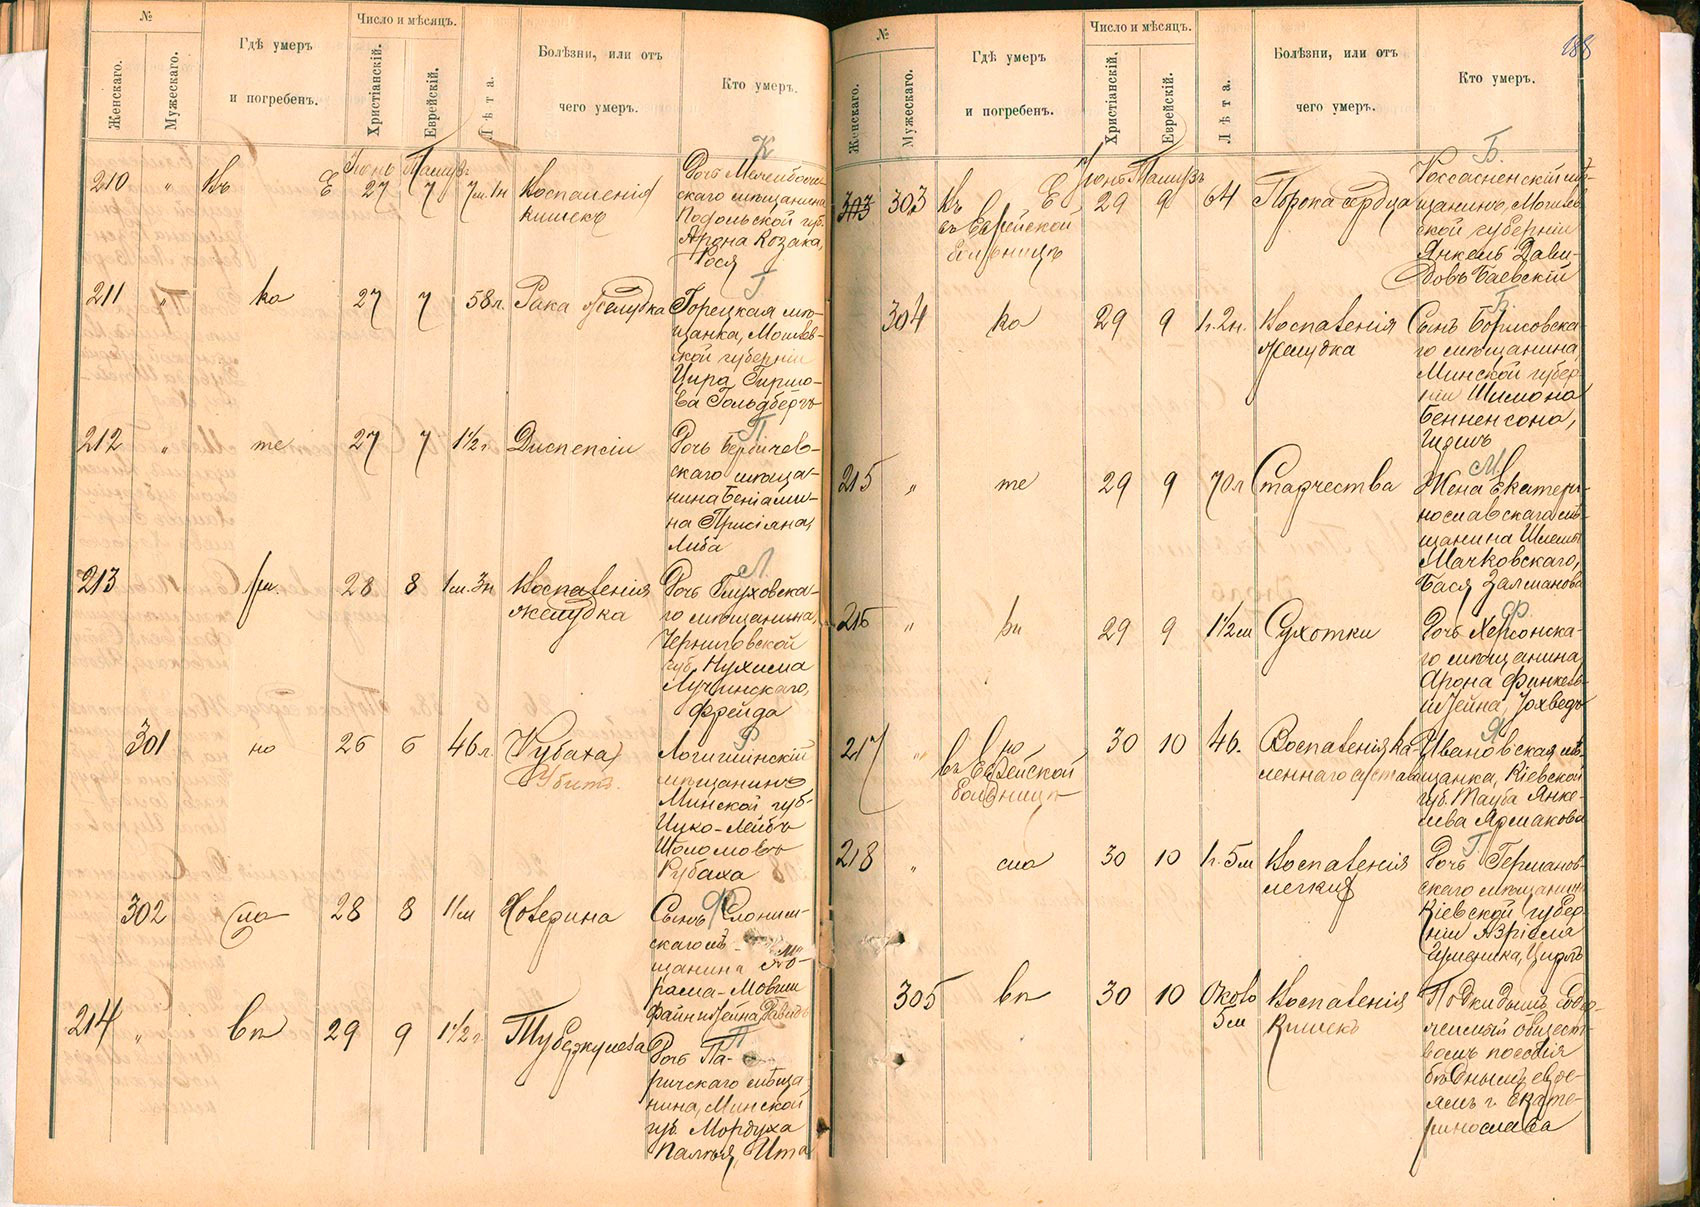 №
Женскаго.
Мужескаго.
Гдѣ умеръ
и погребенъ.
Число и мѣсяцъ.
Христіанскій.
Еврейскій.
Лѣта.
Болѣзни, или отъ
чего умеръ.
Кто умеръ.
К
210 " Въ Е Іюнь Тамузъ
27 7 7м. 1н Воспаленія
кишекъ
Дочь
скаго мѣщанина
Подольской губ.
Арона Козака,
Рося
Г
211 " ка 27 7 58л. Рака желудка
Горецкая мѣ-
щанка, Могилев-
ской губерніи
Цира Гиршо-
ва Гольдбергъ
П
212 " те 27 7 1½ г. Диспепсіи
Дочь Бердичев-
скаго мѣща-
нина Беніами-
на
Либа
Л
213 28 8 1м. 3н Воспаленія
желудка
Дочь Глуховска-
го мѣщанина,
Черниговской
губ. Нухима
Лучинскаго,
Фрейда
Р
301 но 26 6 46л. Рубаха
Убитъ.
Логишинскій
мѣщанинъ
Минской губ.
Ицко-Лейбъ
Шоломовъ
Рубаха
Ф
302 28 8 11м
Сынъ Слоним-
скаго мѣ-
щанина
Мовши
Файнштейна, Давидъ
П
214 " вп 29 9 1½ г. Туберкулеза
Дочь Па-
ричскаго мѣща
нина, Минской
губ. Мордуха
Ита
188
№
Женскаго.
Мужескаго.
Гдѣ умеръ
и погребенъ.
Число и мѣсяцъ.
Христіанскій.
Еврейскій.
Лѣта.
Болѣзни, или отъ
чего умеръ.
Кто умеръ.
Б.
303 303 Въ Е Іюнь Тамузъ
въ Еврейской
больницѣ
29 9 64 Порока сердца
мѣ-
щанинъ, Могилев
ской губерніи
Янкель Дави-
довъ Баевскій
Б.
304 ка 29 9 1г. 2н. Воспаленія
желудка
Сынъ Борисовска-
го мѣщанина,
Минской губер-
ніи Шимона
Бенненсона,
М
215 " те 29 9 70л Старчества
Жена Екатери-
нославскаго мѣ-
щанина Шлемы
Мачковскаго,
Бася Залманова
Ф.
216 " 29 9 1½ м Сухотки
Дочь Херсонска-
го мѣщанина,
Арона Финкель-
штейна, Іохведъ
Я
217 " но
въ Еврейской
больницѣ
30 10 46. Воспаленія ка-
леннаго сустава
Ивановская мѣ-
щанка, Кіевской
губ. Тауба Янке-
лева Ядмакова
Г
218 " сла 30 10 1г. 5м Воспаленія
легких
Дочь Германов-
скаго мѣщанин
Кіевской губер-
ніи Азріела
305 вп 30 10 Около
5м Воспаленія
Кишекъ
Подкидышъ
общест-
вомъ пособія
бѣднымъ евре-
ямъ г. Екате-
ринослава